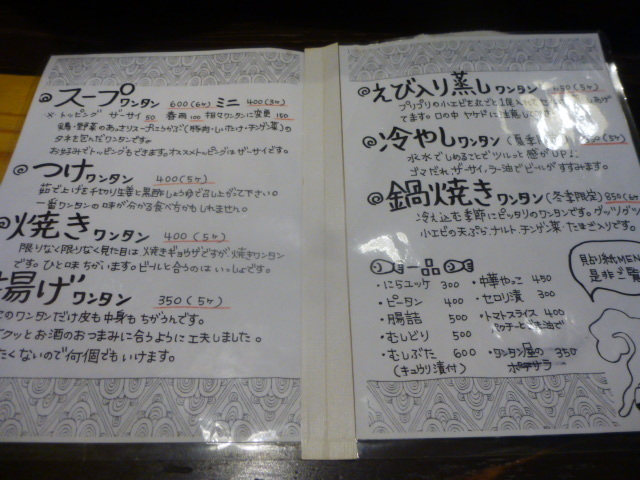 @スープワンタン 600(6ヶ) ミニ 400(3ヶ)
※トッピング ザーサイ 50 春雨 100 担々ワンタンに変更 150
鶏・野菜のあっさりスープにとうがぶで(豚肉・しいたけ・チンゲン菜)の
タネを包んだワンタンです。
お好みでトッピングもできます。オススメトッピングはザーサイです。
@つけワンタン 400(5ヶ)
茹で上げを千切り生姜と黒酢しょうゆで召し上がって下さい。
一番ワンタンの味が分かる食べ方かもしれません。
焼きワンタン 400(5ヶ)
限りなく限りなく見た目は焼きギョウザですが、焼きワンタン
です。ひと味ちがいます。ビールと合うのはいっしょです。
揚げワンタン 350(5ヶ)
このワンタンだけ皮も中身もちがうんです。
クッとお酒のおつまみに合うように工夫しました。
たくないので何個でもいけます。
@えび入り蒸しワンタン
プリプリの小エビを丸ごと1尾入れて
てます。口の中ヤケドに注意
@冷やしワンタン(夏季限定)
氷水でしめることでツルッと感がUP!
ゴマだれ、ザーサイ、ラー油でビールがすすみます。
@鍋焼きワンタン(冬季限定) 850(6ヶ)
冷え込む季節にピッタリのワンタンです。グッツグツ
小エビの天ぷら、ナルト、チンゲン菜・たまご入りです。
一品
・にらユッケ 300
・ピータン 400
・腸詰 500
・むしどり 500
・むしぶた 600
(キュウリ漬付)
・中華やっこ 450
・セロリ漬 300
・トマトスライス 400
・ワンタン屋の 350
ポテサラ
貼紙MEN
是非ご覧